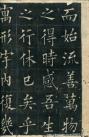 而始流善萬物
之得時感吾生
之行休已矣乎
寓形宇內復幾